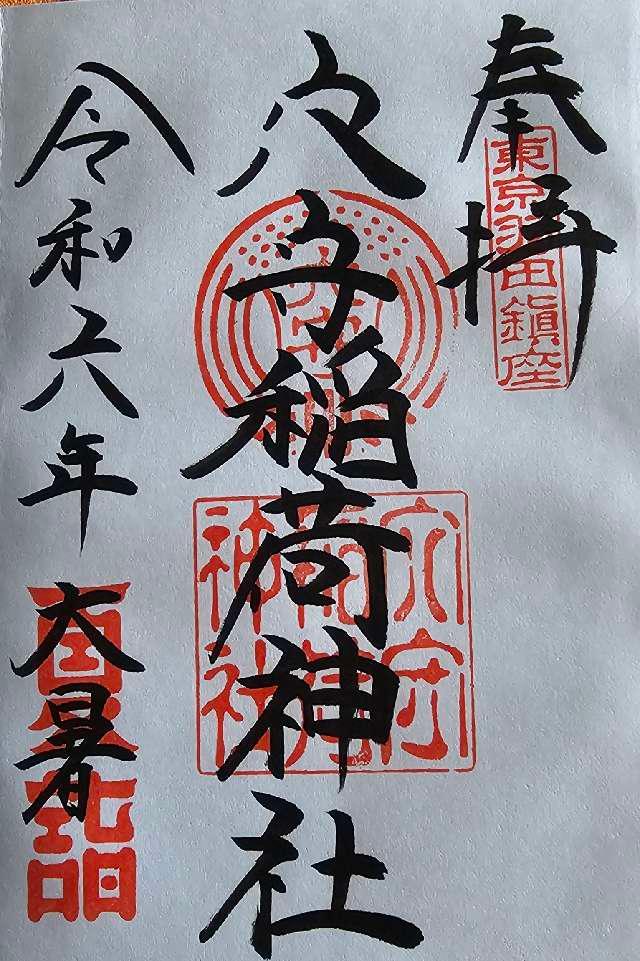 奉拝
東京羽田鎮座
穴守稲荷神社
穴守稲荷神社
令和六年
大暑